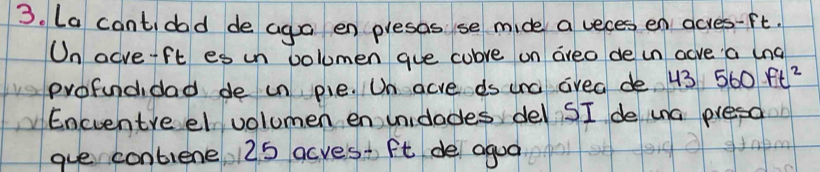 3. La cantidad de aga en presas se mide a veces en acres-ft.
Un acre-ft es un volumen que cubre un área de un acre a una
profundidad de un pie. Un acre es una área de 43 560 ft²
Encuentre el volumen en unidades del SI de una presa
que contiene 25 acres-ft de agua